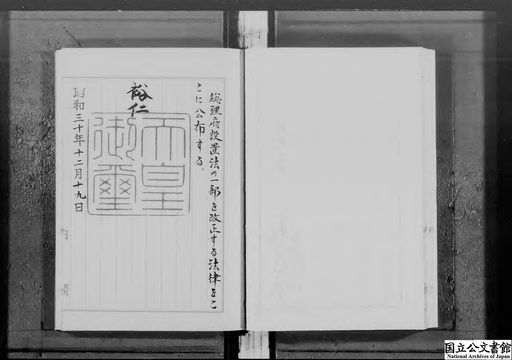 総理府設置法の一部を改正する法律をこ
こに公布する。
裕仁
天皇
御璽
昭和三十年十二月十九日
国立公文書館
National Archives of Japan